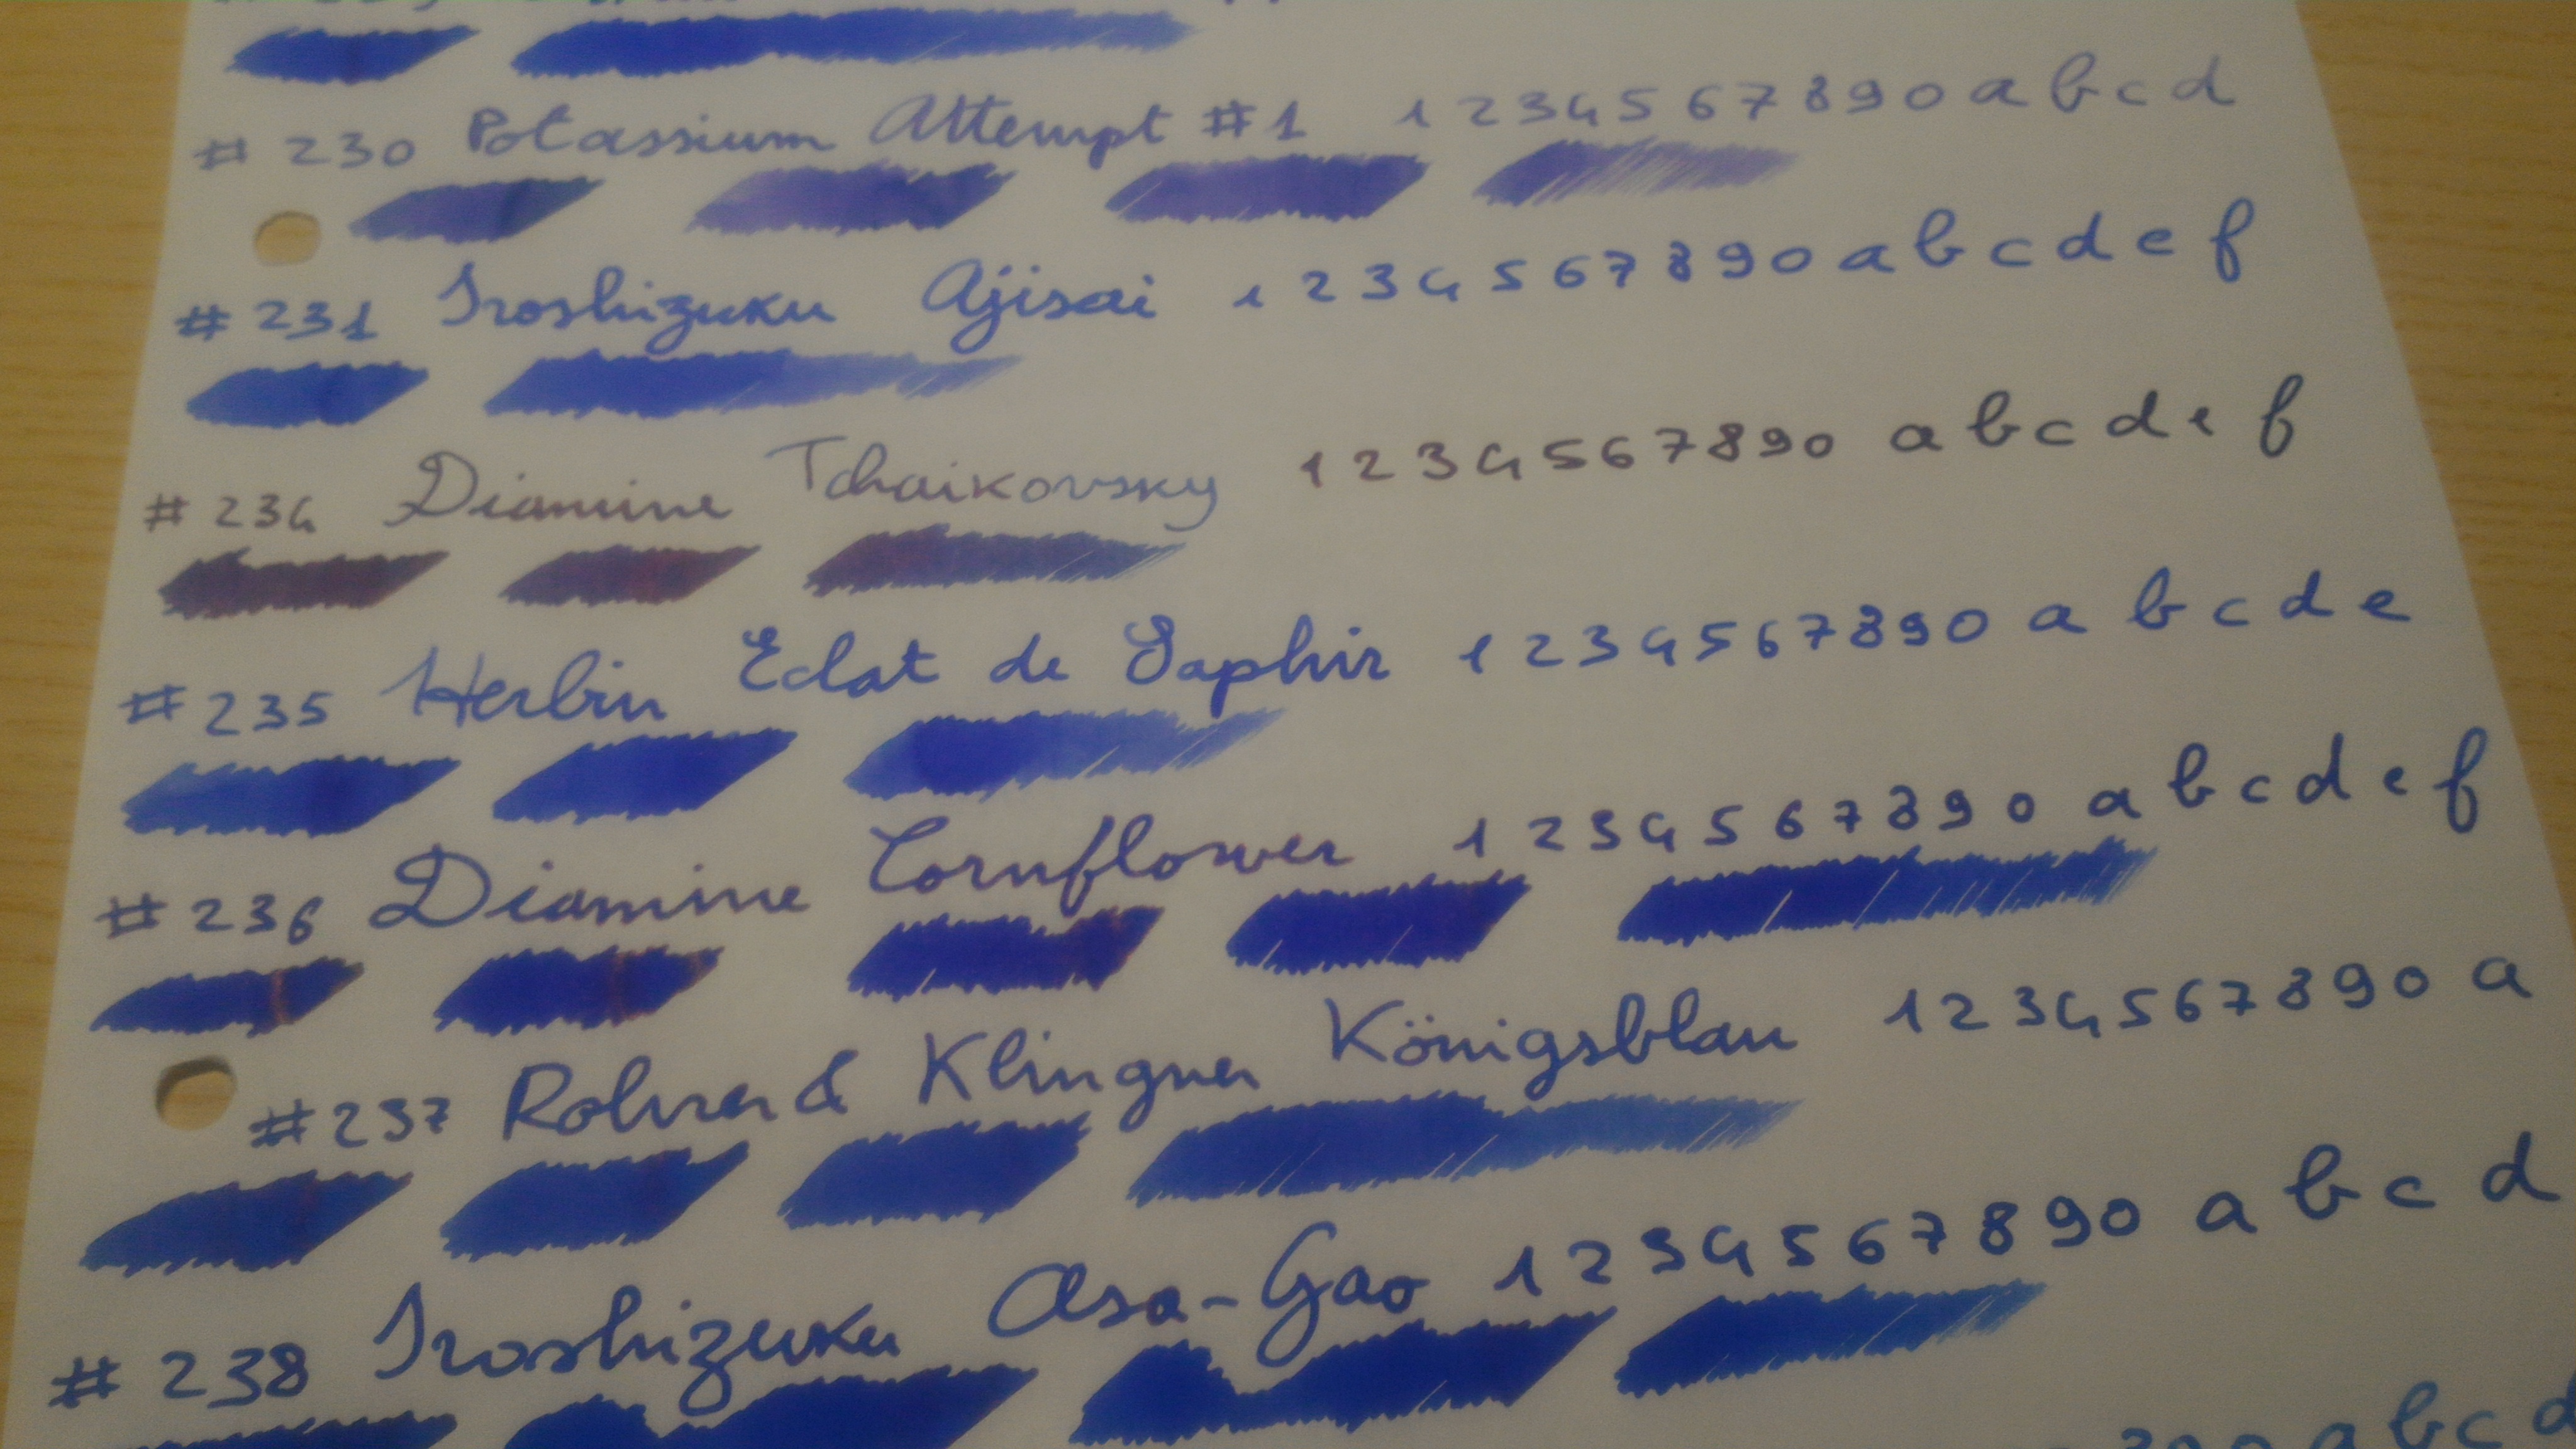 # 230 Potassium Attempt #1 1234567890 a b c d
# 231 Iroshizuku Ajisai 1234567890 a b c d e f
# 234 Diamine Tchaikovsky 1234567890 a b c d e f
# 235 Herbin Eclat de Saphir 1234567890 a b c d e
# 236 Diamine Cornflower 1234567890 a b c d e f
#237 Rohrer & Klingner Königsblau 1234567890 a
# 238 Iroshizuku Asa-Gao 1234567890 a b c d
890 a b c d